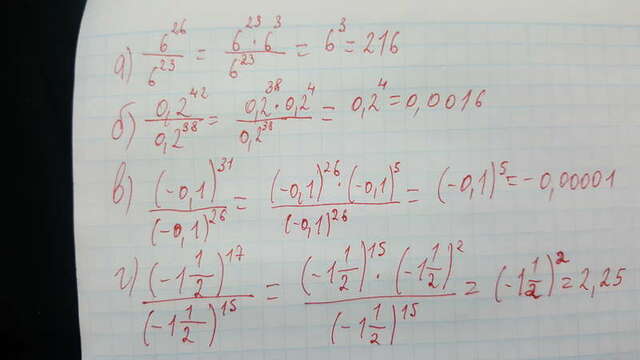 а) 6^26 / 6^23 = 6^23 · 6^3 / 6^23 = 6^3 = 216
б) 0,2^42 / 0,2^38 = 0,2^38 · 0,2^4 / 0,2^38 = 0,2^4 = 0,0016
в) (-0,1)^31 / (-0,1)^26 = (-0,1)^26 · (-0,1)^5 / (-0,1)^26 = (-0,1)^5 = -0,00001
г) (-1 1/2)^17 / (-1 1/2)^15 = (-1 1/2)^15 · (-1 1/2)^2 / (-1 1/2)^15 = (-1 1/2)^2 = 2,25